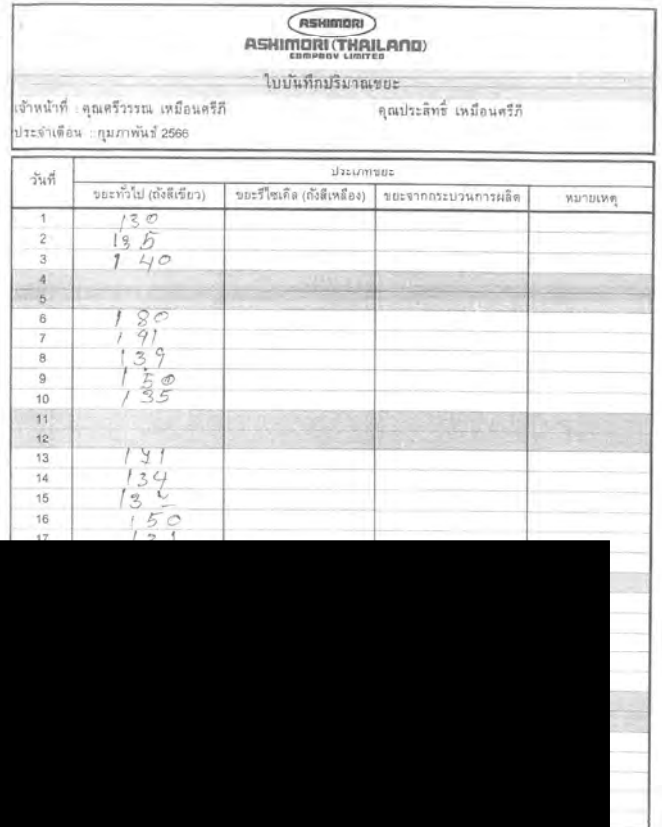 ASHIMORI
ASHIMORI (THAILAND)
COMPANY LIMITED
ใบบันทึกปริมาณขยะ
เจ้าหน้าที่ : คุณศรีวรรณ เหมือนศรีภี คุณประสิทธิ์ เหมือนศรีภี
ประจำเดือน : กุมภาพันธ์ 2566
วันที่ ประเภทขยะ
ขยะทั่วไป (ถังสีเขียว) ขยะรีไซเคิล (ถังสีเหลือง) ขยะจากกระบวนการผลิต หมายเหตุ
1 130
2 135
3 140
4
5
6 180
7 191
8 139
9 150
10 135
11
12
13
14 134
15
16 150
17